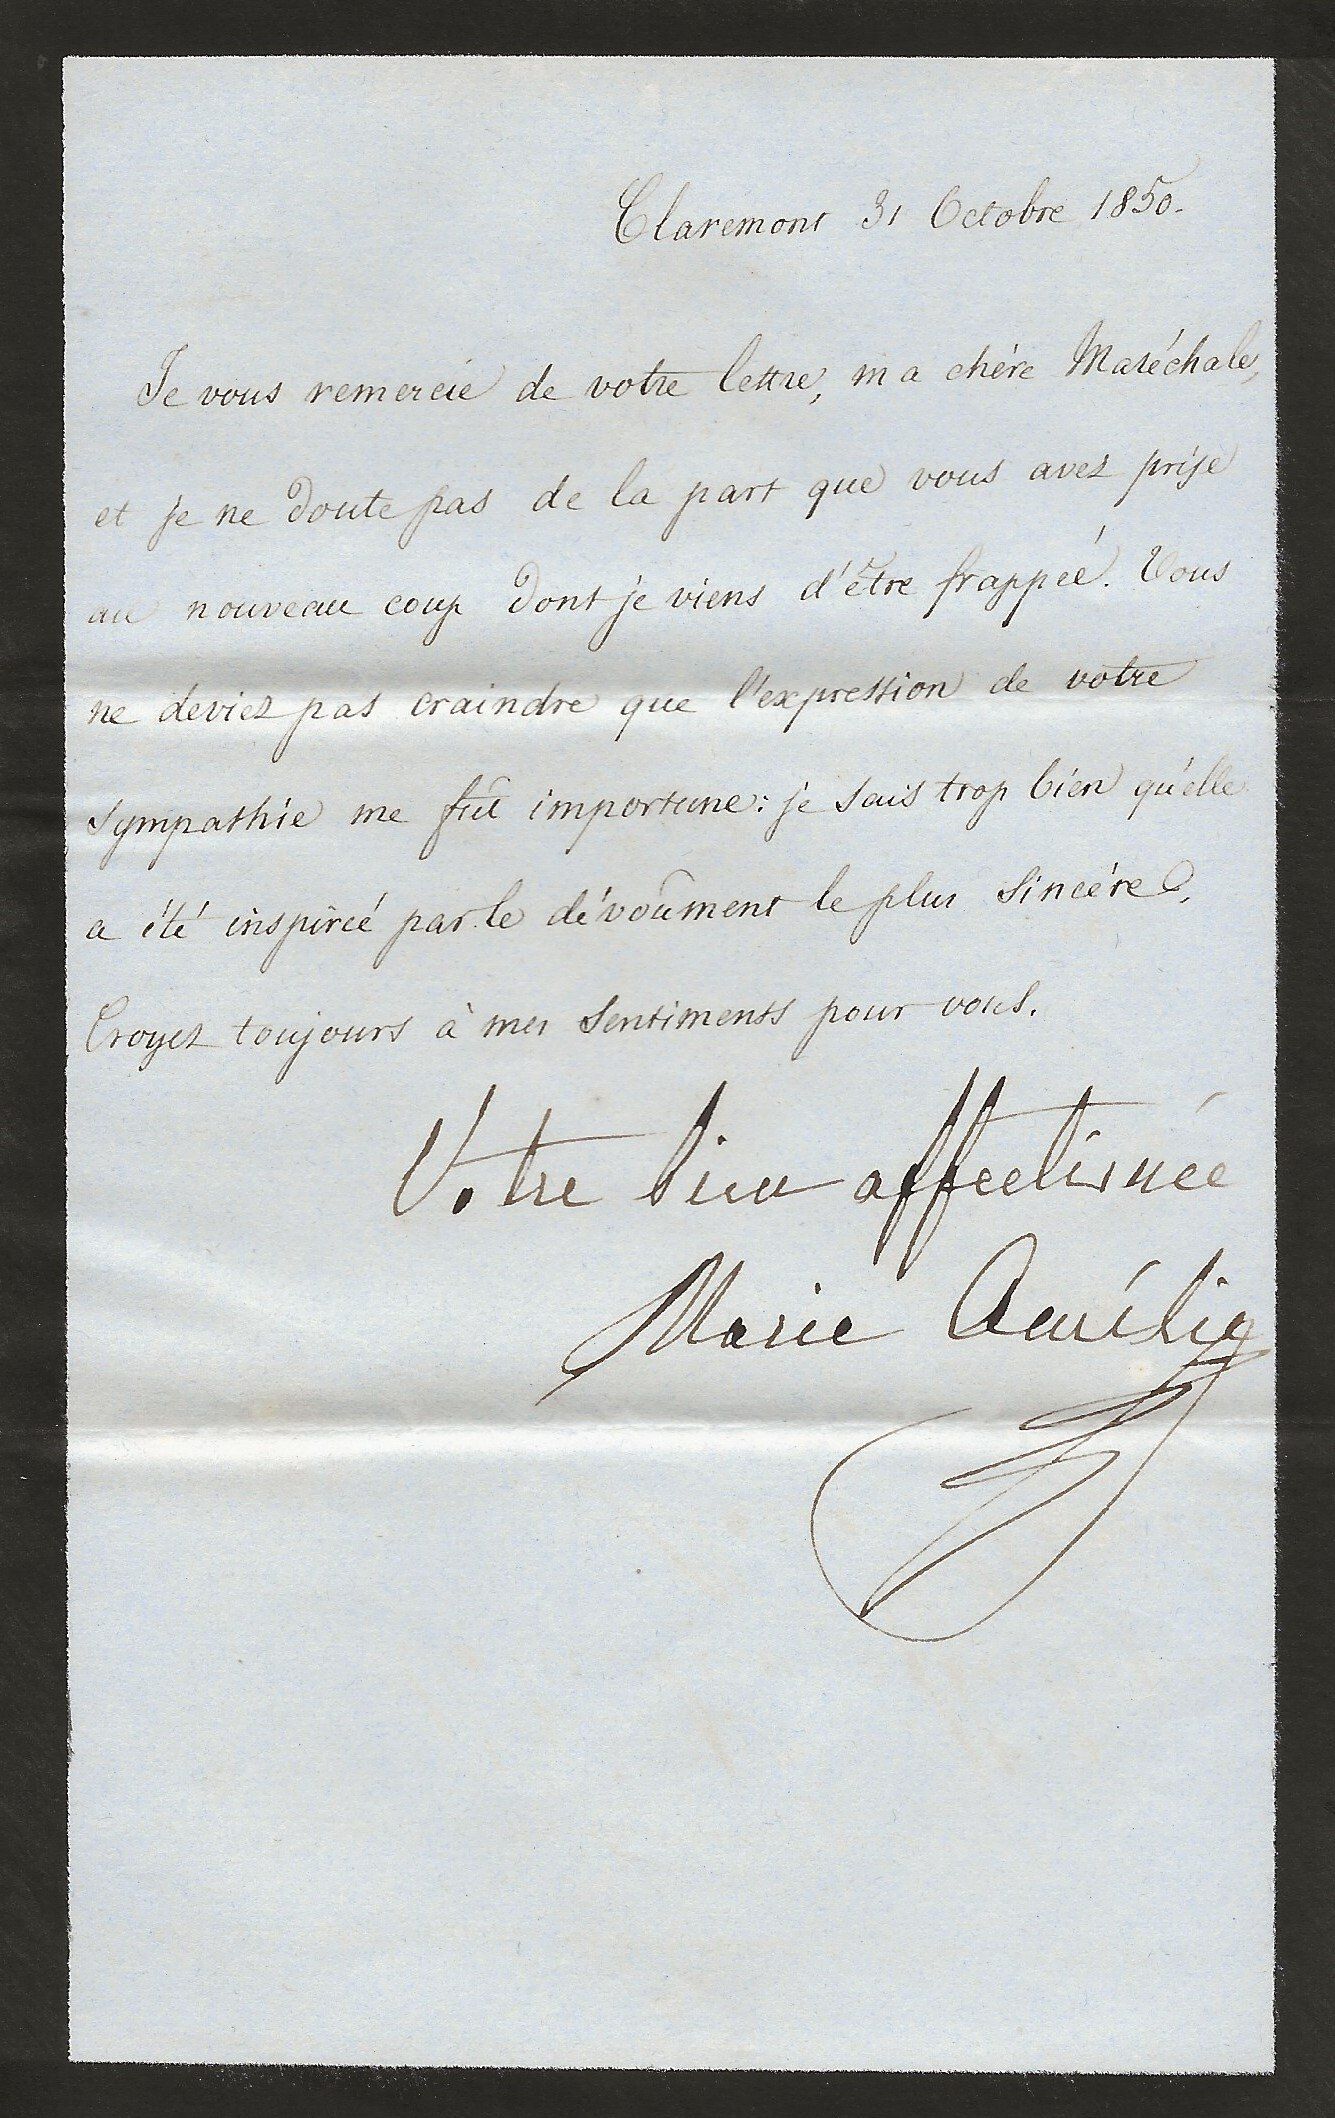 Claremont 31 Octobre 1850.
Je vous remercie de votre lettre, ma chère Maréchale,
et je ne doute pas de la part que vous avez prise
au nouveau coup dont je viens d'être frappée. Vous
ne deviez pas craindre que l'expression de votre
sympathie me fût importune: je sais trop bien qu'elle
a été inspirée par le dévoûment le plus sincère.
Croyez toujours à mes sentiments pour vous.
Votre bien affectionnée
Marie Amélie